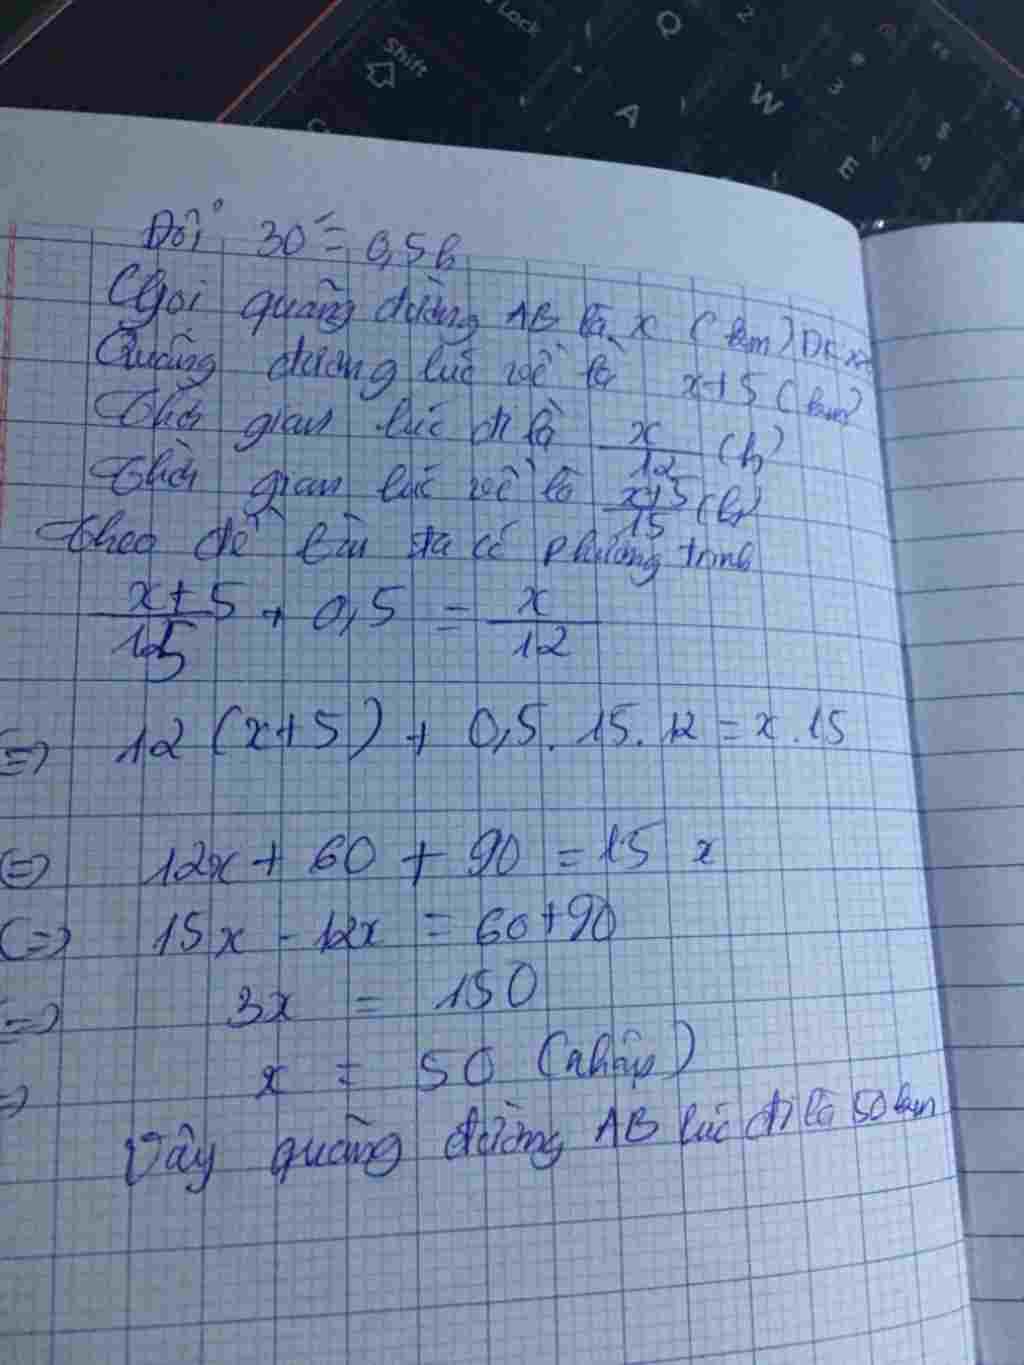 Shift
Lock
Q
2
A
W
3
E
4
$
Đổi 30' = 0,5h
Gọi quãng đường AB là x (km) ĐK x
Quãng đường lúc về là x+5 (km)
Thời gian lúc đi là x/12 (h)
Thời gian lúc về là x+5/15 (h)
Theo đề bài ta có phương trình
x+5/15 + 0,5 = x/12
=> 12(x+5) + 0,5.15.12 = x.15
<=> 12x + 60 + 90 = 15x
<=> 15x - 12x = 60+90
<=> 3x = 150
=> x = 50 (nhận)
Vậy quãng đường AB lúc đi là 50 km